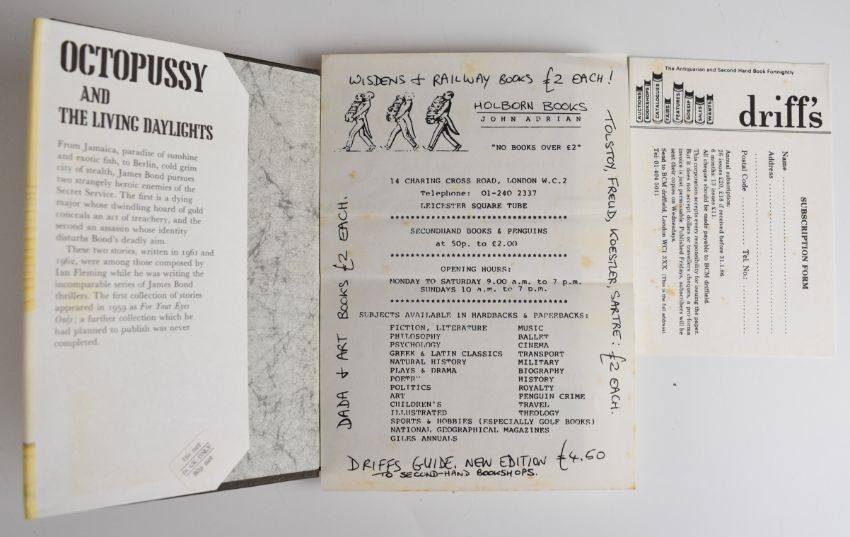 OCTOPUSSY
AND
THE LIVING DAYLIGHTS
From Jamaica, paradise of sunshine
and exotic fish, to Berlin, cold grim
city of stealth, James Bond pursues
two strangely heroic enemies of the
Secret Service. The first is a dying
major whose dwindling hoard of gold
conceals an act of treachery, and the
second an assassin whose identity
disturbs Bond's deadly aim.
These two stories, written in 1961 and
1962, were among those composed by
Ian Fleming while he was writing the
incomparable series of James Bond
thrillers. The first collection of stories
appeared in 1959 as For Your Eyes
Only; a further collection which he
had planned to publish was never
completed.
WISDENS & RAILWAY BOOKS £2 EACH!
HOLBORN BOOKS
JOHN ADRIAN
"NO BOOKS OVER £2"
14 CHARING CROSS ROAD, LONDON W.C.2
Telephone: 01-240 2337
LEICESTER SQUARE TUBE
SECONDHAND BOOKS & PENGUINS
at 50p. to £2.00
OPENING HOURS:
MONDAY TO SATURDAY 9.00 a.m. to 7 p.m.
SUNDAYS 10 a.m. to 7 p.m.
SUBJECTS AVAILABLE IN HARDBACKS & PAPERBACKS:
FICTION, LITERATURE MUSIC
PHILOSOPHY BALLET
PSYCHOLOGY CINEMA
GREEK & LATIN CLASSICS TRANSPORT
NATURAL HISTORY MILITARY
PLAYS & DRAMA BIOGRAPHY
POETRY HISTORY
POLITICS ROYALTY
ART PENGUIN CRIME
CHILDREN'S TRAVEL
ILLUSTRATED THEOLOGY
SPORTS & HOBBIES (ESPECIALLY GOLF BOOKS)
NATIONAL GEOGRAPHICAL MAGAZINES
GILES ANNUALS
DADA & ART BOOKS £2 EACH.
TOLSTOY, FREUD, KOESTLER, SARTRE: £2 EACH.
DRIFFS GUIDE, NEW EDITION £4.50
TO SECOND-HAND BOOKSHOPS.
The Antiquarian and Second Hand Book Fortnightly
driff's
SUBSCRIPTION FORM
Name
Address
Postal Code Tel. No.:
Annual subscription:
26 issues £20, £18 if received before 31.1.86
6 months 13 issues £11.
All cheques should be made payable to BCM driffield.
This corporation accepts every responsibility for issuing the paper.
But it does not accept dollars or travellers cheques, a pro-forma
invoice is just permissable. Published Fridays, subscribers will be
sent their copies on Wednesdays.
Send to BCM driffield, London WC1 3XX. (This is the full address)
Tel: 01-404 5011